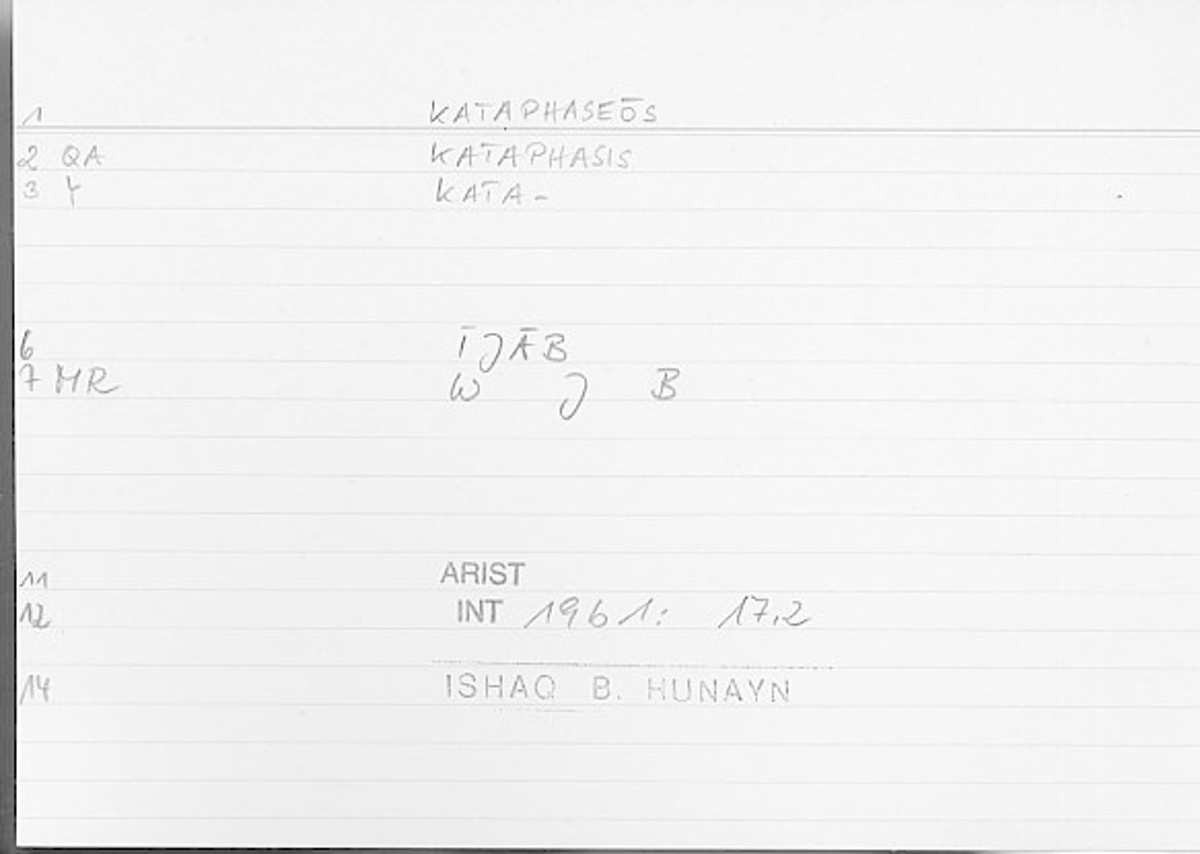 1 KATAPHASEŌS
2 QA KATAPHASIS
3 KATA-
6 ĪJĀB
7 MR W J B
11 ARIST
12 INT 1961: 17,2
14 ISHAQ B. HUNAYN